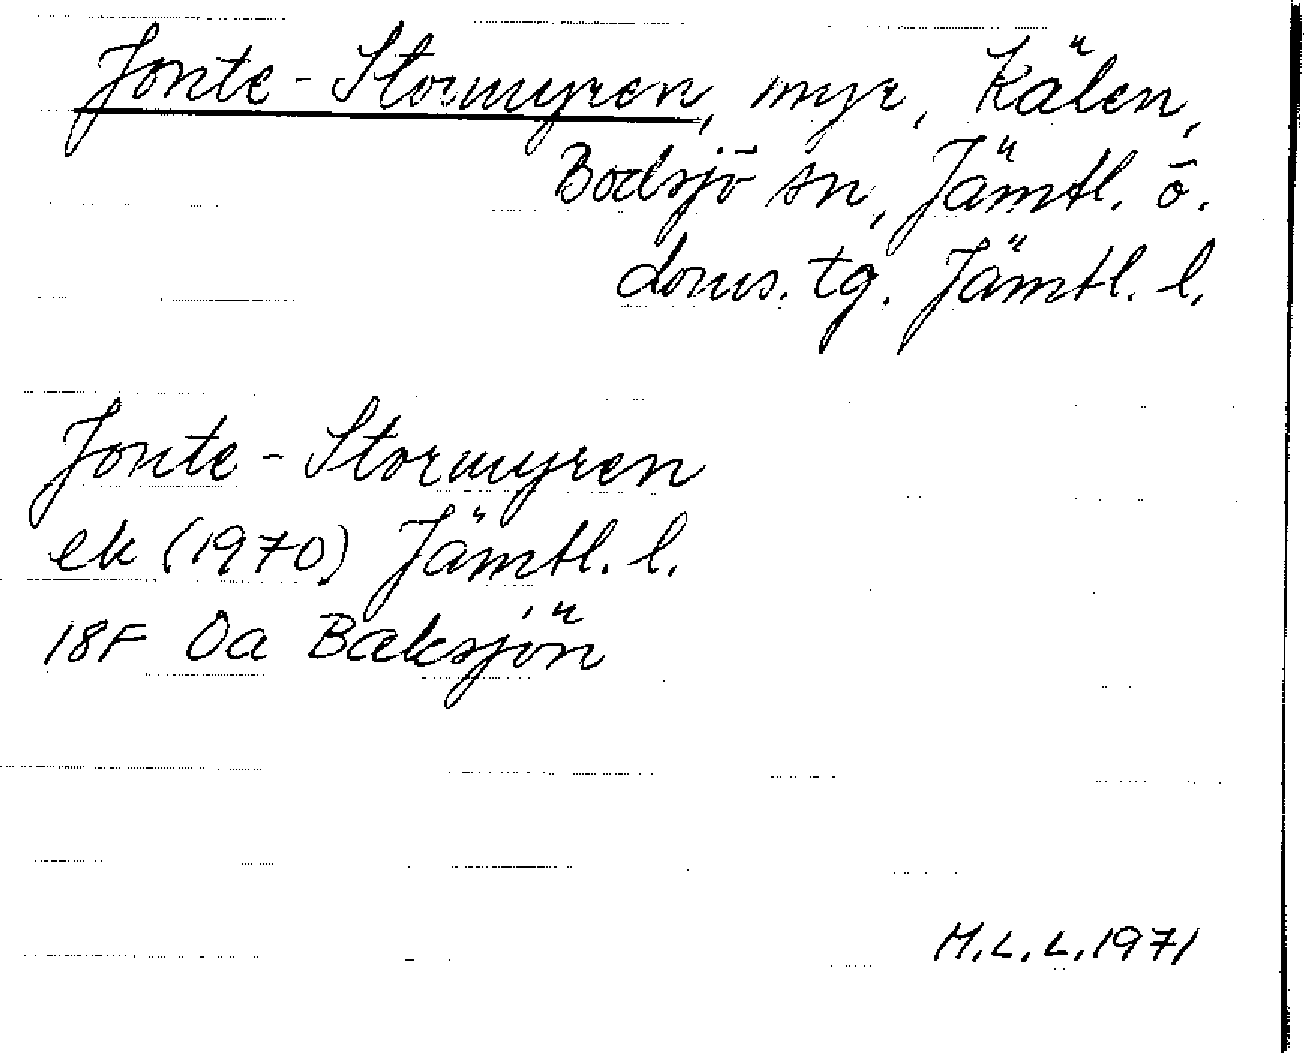 Jonte-Stormyren, myr, Kälen,
Bodsjö sn, Jämtl. ö.
doms. tg. Jämtl. l.
Jonte-Stormyren
ek (1970) Jämtl. l.
18F Oa Baksjön
M.L.L.1971